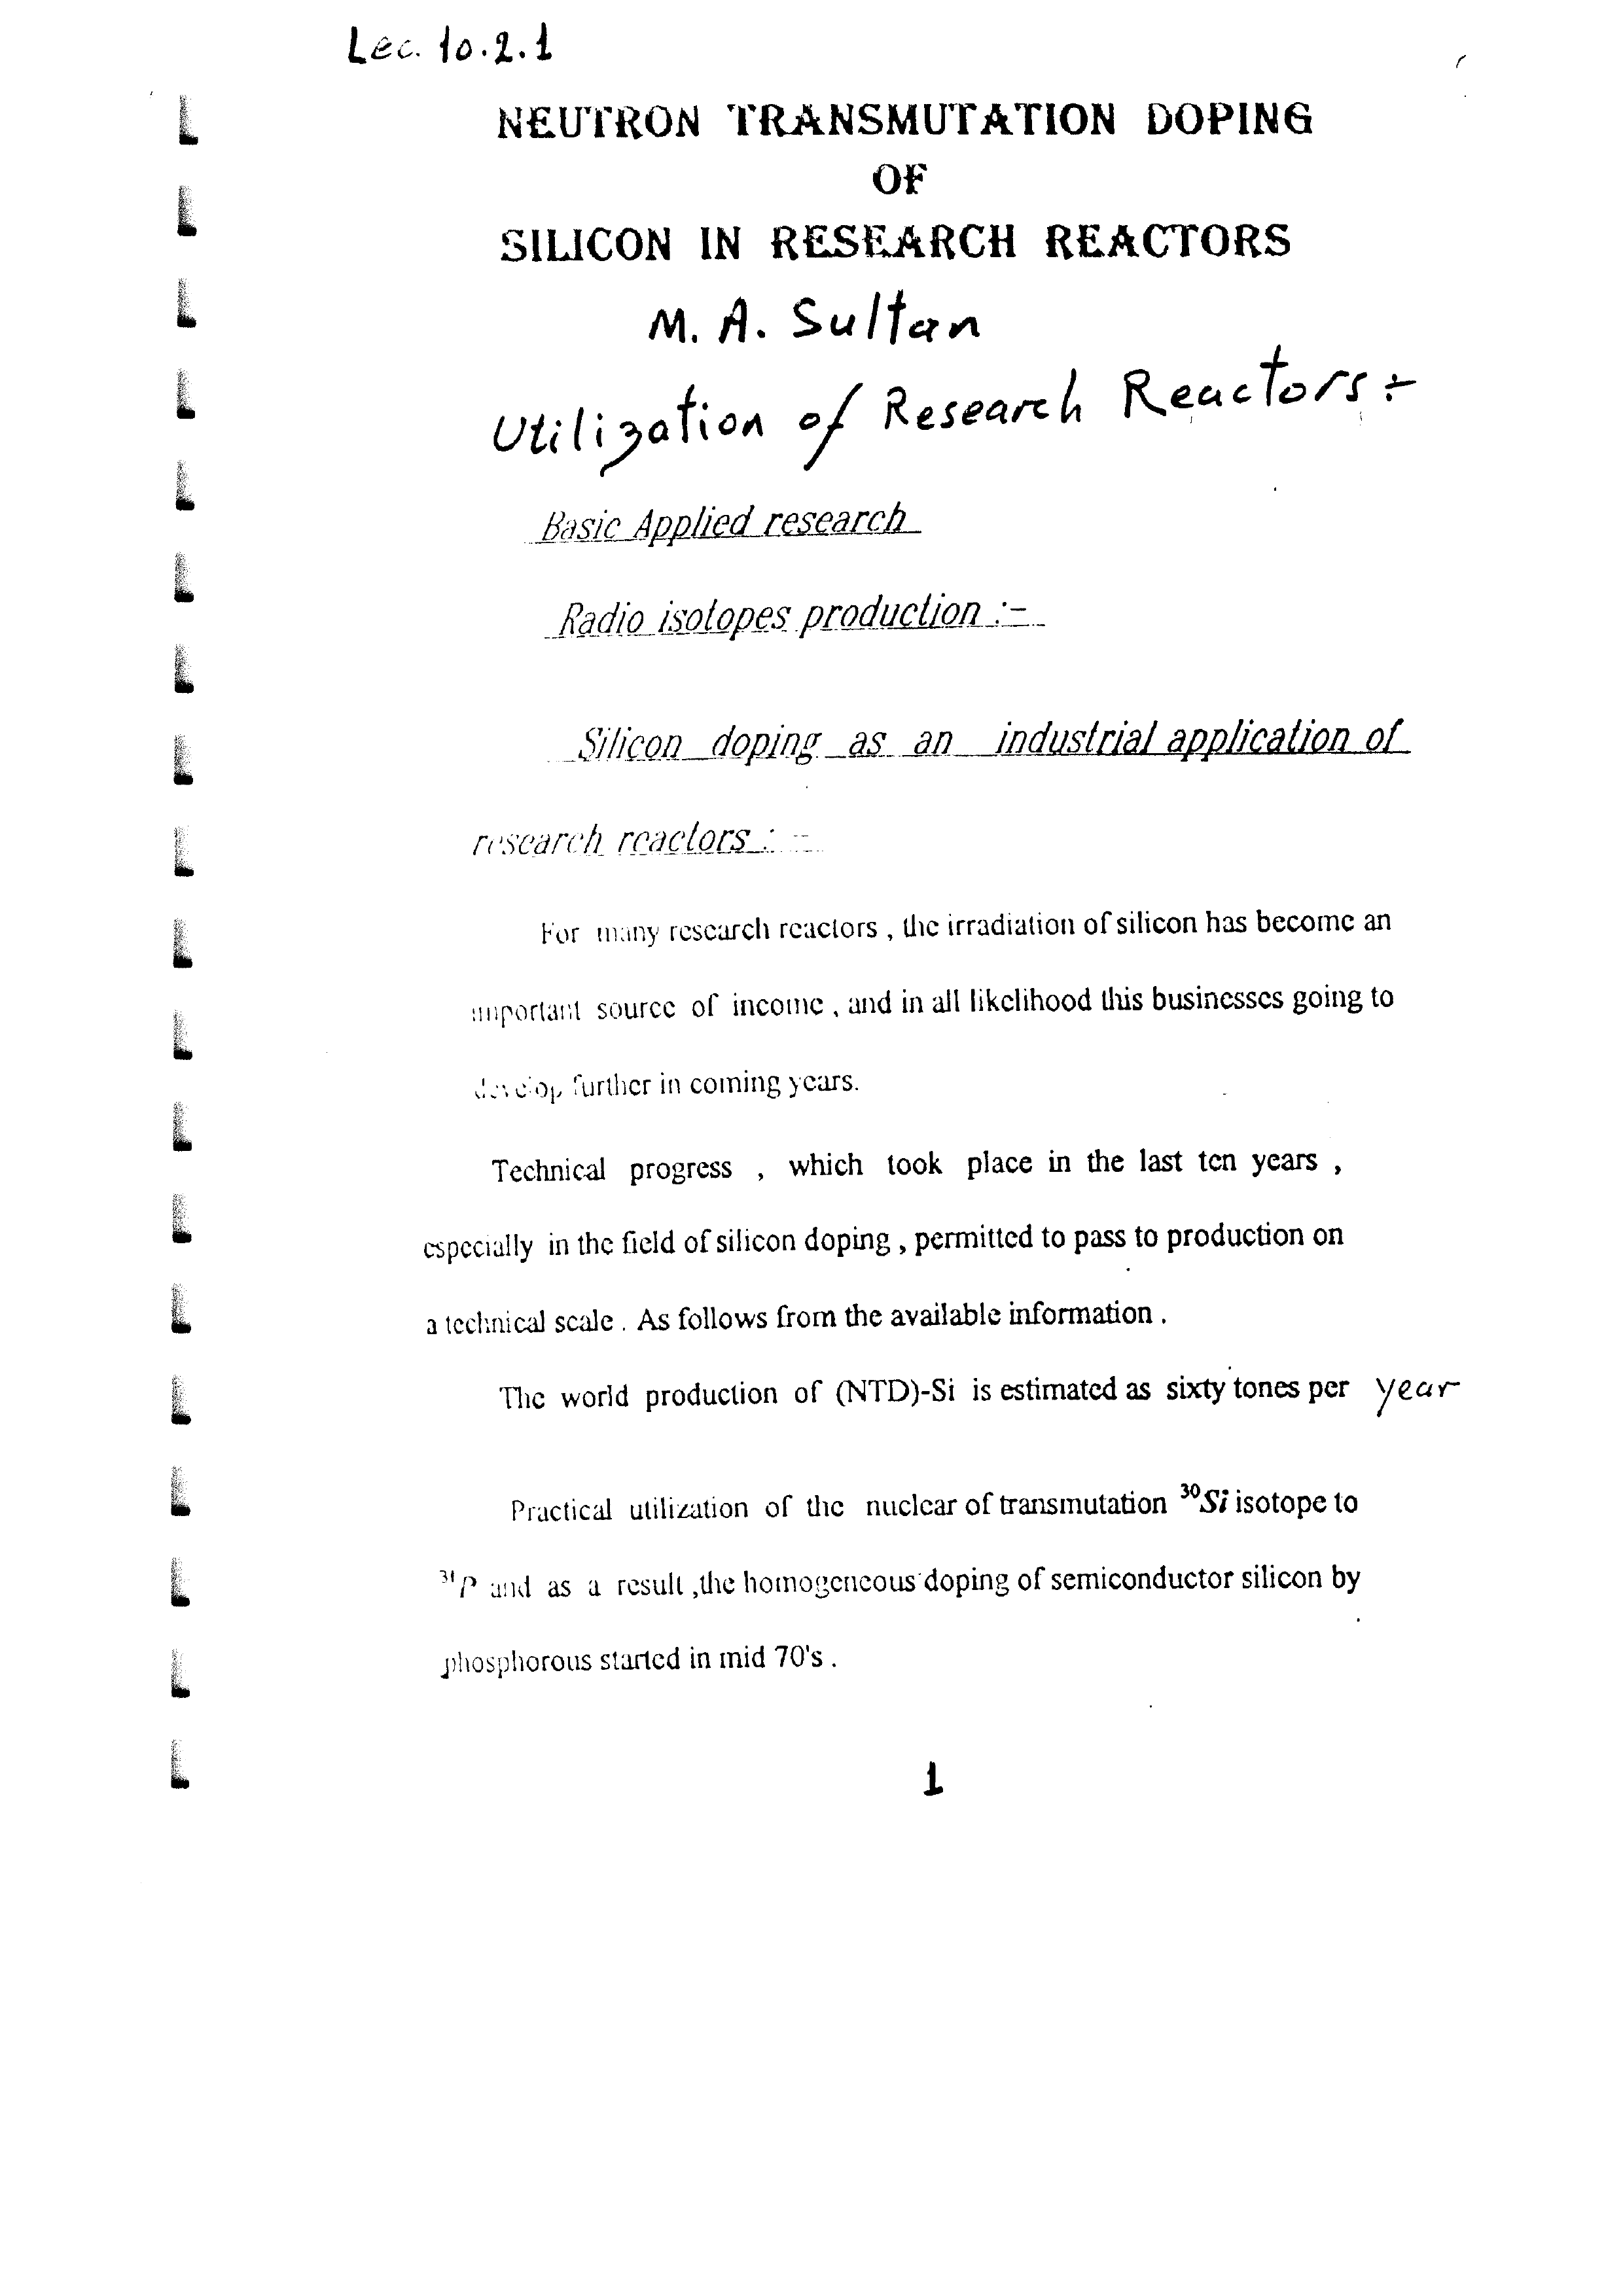 Lec. 10.2.1
NEUTRON TRANSMUTATION DOPING
OF
SILICON IN RESEARCH REACTORS
M. A. Sultan
Utilization of Research Reactors :-
Basic Applied research
Radio isotopes production :-
Silicon doping as an industrial application of
research reactors : -
For many research reactors , the irradiation of silicon has become an
important source of income , and in all likelihood this businesses going to
develop further in coming years.
Technical progress , which took place in the last ten years ,
especially in the field of silicon doping , permitted to pass to production on
a technical scale . As follows from the available information .
The world production of (NTD)-Si is estimated as sixty tones per year
Practical utilization of the nuclear of transmutation ³⁰Si isotope to
³¹P and as a result ,the homogeneous doping of semiconductor silicon by
phosphorous started in mid 70's .
1